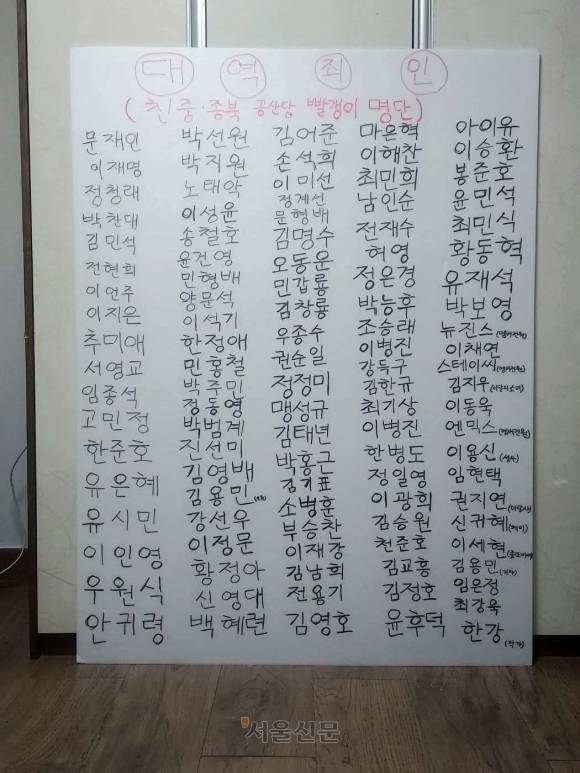 대역죄인
(친중·종북 공산당 빨갱이 명단)
문재인
이재명
정청래
박찬대
김민석
전현희
이언주
이지은
추미애
서영교
임종석
고민정
한준호
유은혜
유시민
이인영
우원식
안귀령
박선원
박지원
노태악
이성윤
송철호
윤건영
민형배
양문석
이석기
한정애
민홍철
박주민
정동영
박범계
진선미
김영배
김용민
강선우
이정문
황정아
신영대
백혜련
김어준
손석희
이미선
정계선
문형배
김명수
오동운
민갑룡
김창룡
우종수
권순일
정정미
맹성규
김태년
박홍근
김기표
소병훈
부승찬
이재강
김남희
전용기
김영호
마은혁
이해찬
최민희
남인순
전재수
허영
정은경
박능후
조승래
이병진
강득구
김한규
최기상
이병진
한병도
정일영
이광희
김승원
천준호
김교흥
김정호
윤후덕
아이유
이승환
봉준호
윤민석
최민식
황동혁
유재석
박보영
뉴진스(멤버전원)
이채연
스테이씨(멤버전원)
김지우(이달의소녀)
이동욱
엔믹스(멤버전원)
이용신(성우)
임현택
권지연
신귀혜
이세현
김용민(기자)
임은정
최강욱
한강(작가)
서울신문